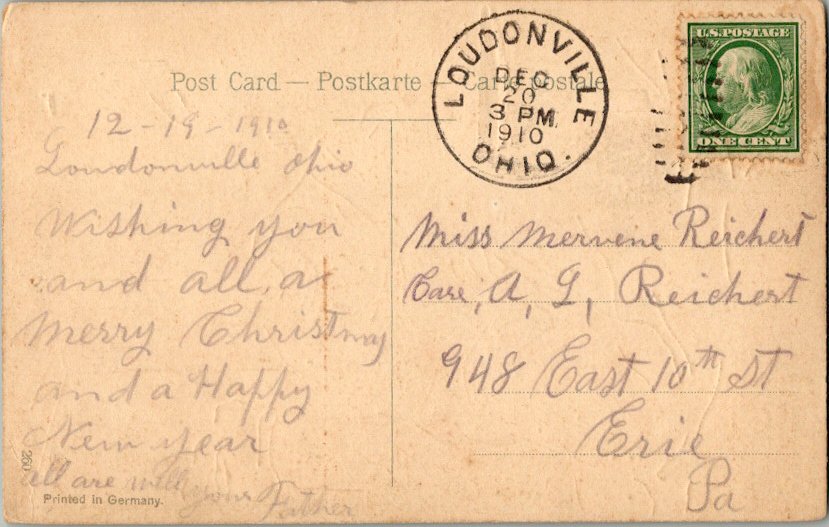 Post Card — Postkarte — Carte postale
LOUDONVILLE
DEC
20
3 PM
1910
OHIO.
U.S. POSTAGE
ONE CENT
12-19-1910
Loudonville Ohio
Wishing you
and all, a
Merry Christmas
and a Happy
New year
all are well
your Father
Miss Mervene Reichert
Care, A, G, Reichert
948 East 10th St
Erie
Pa
260
Printed in Germany.